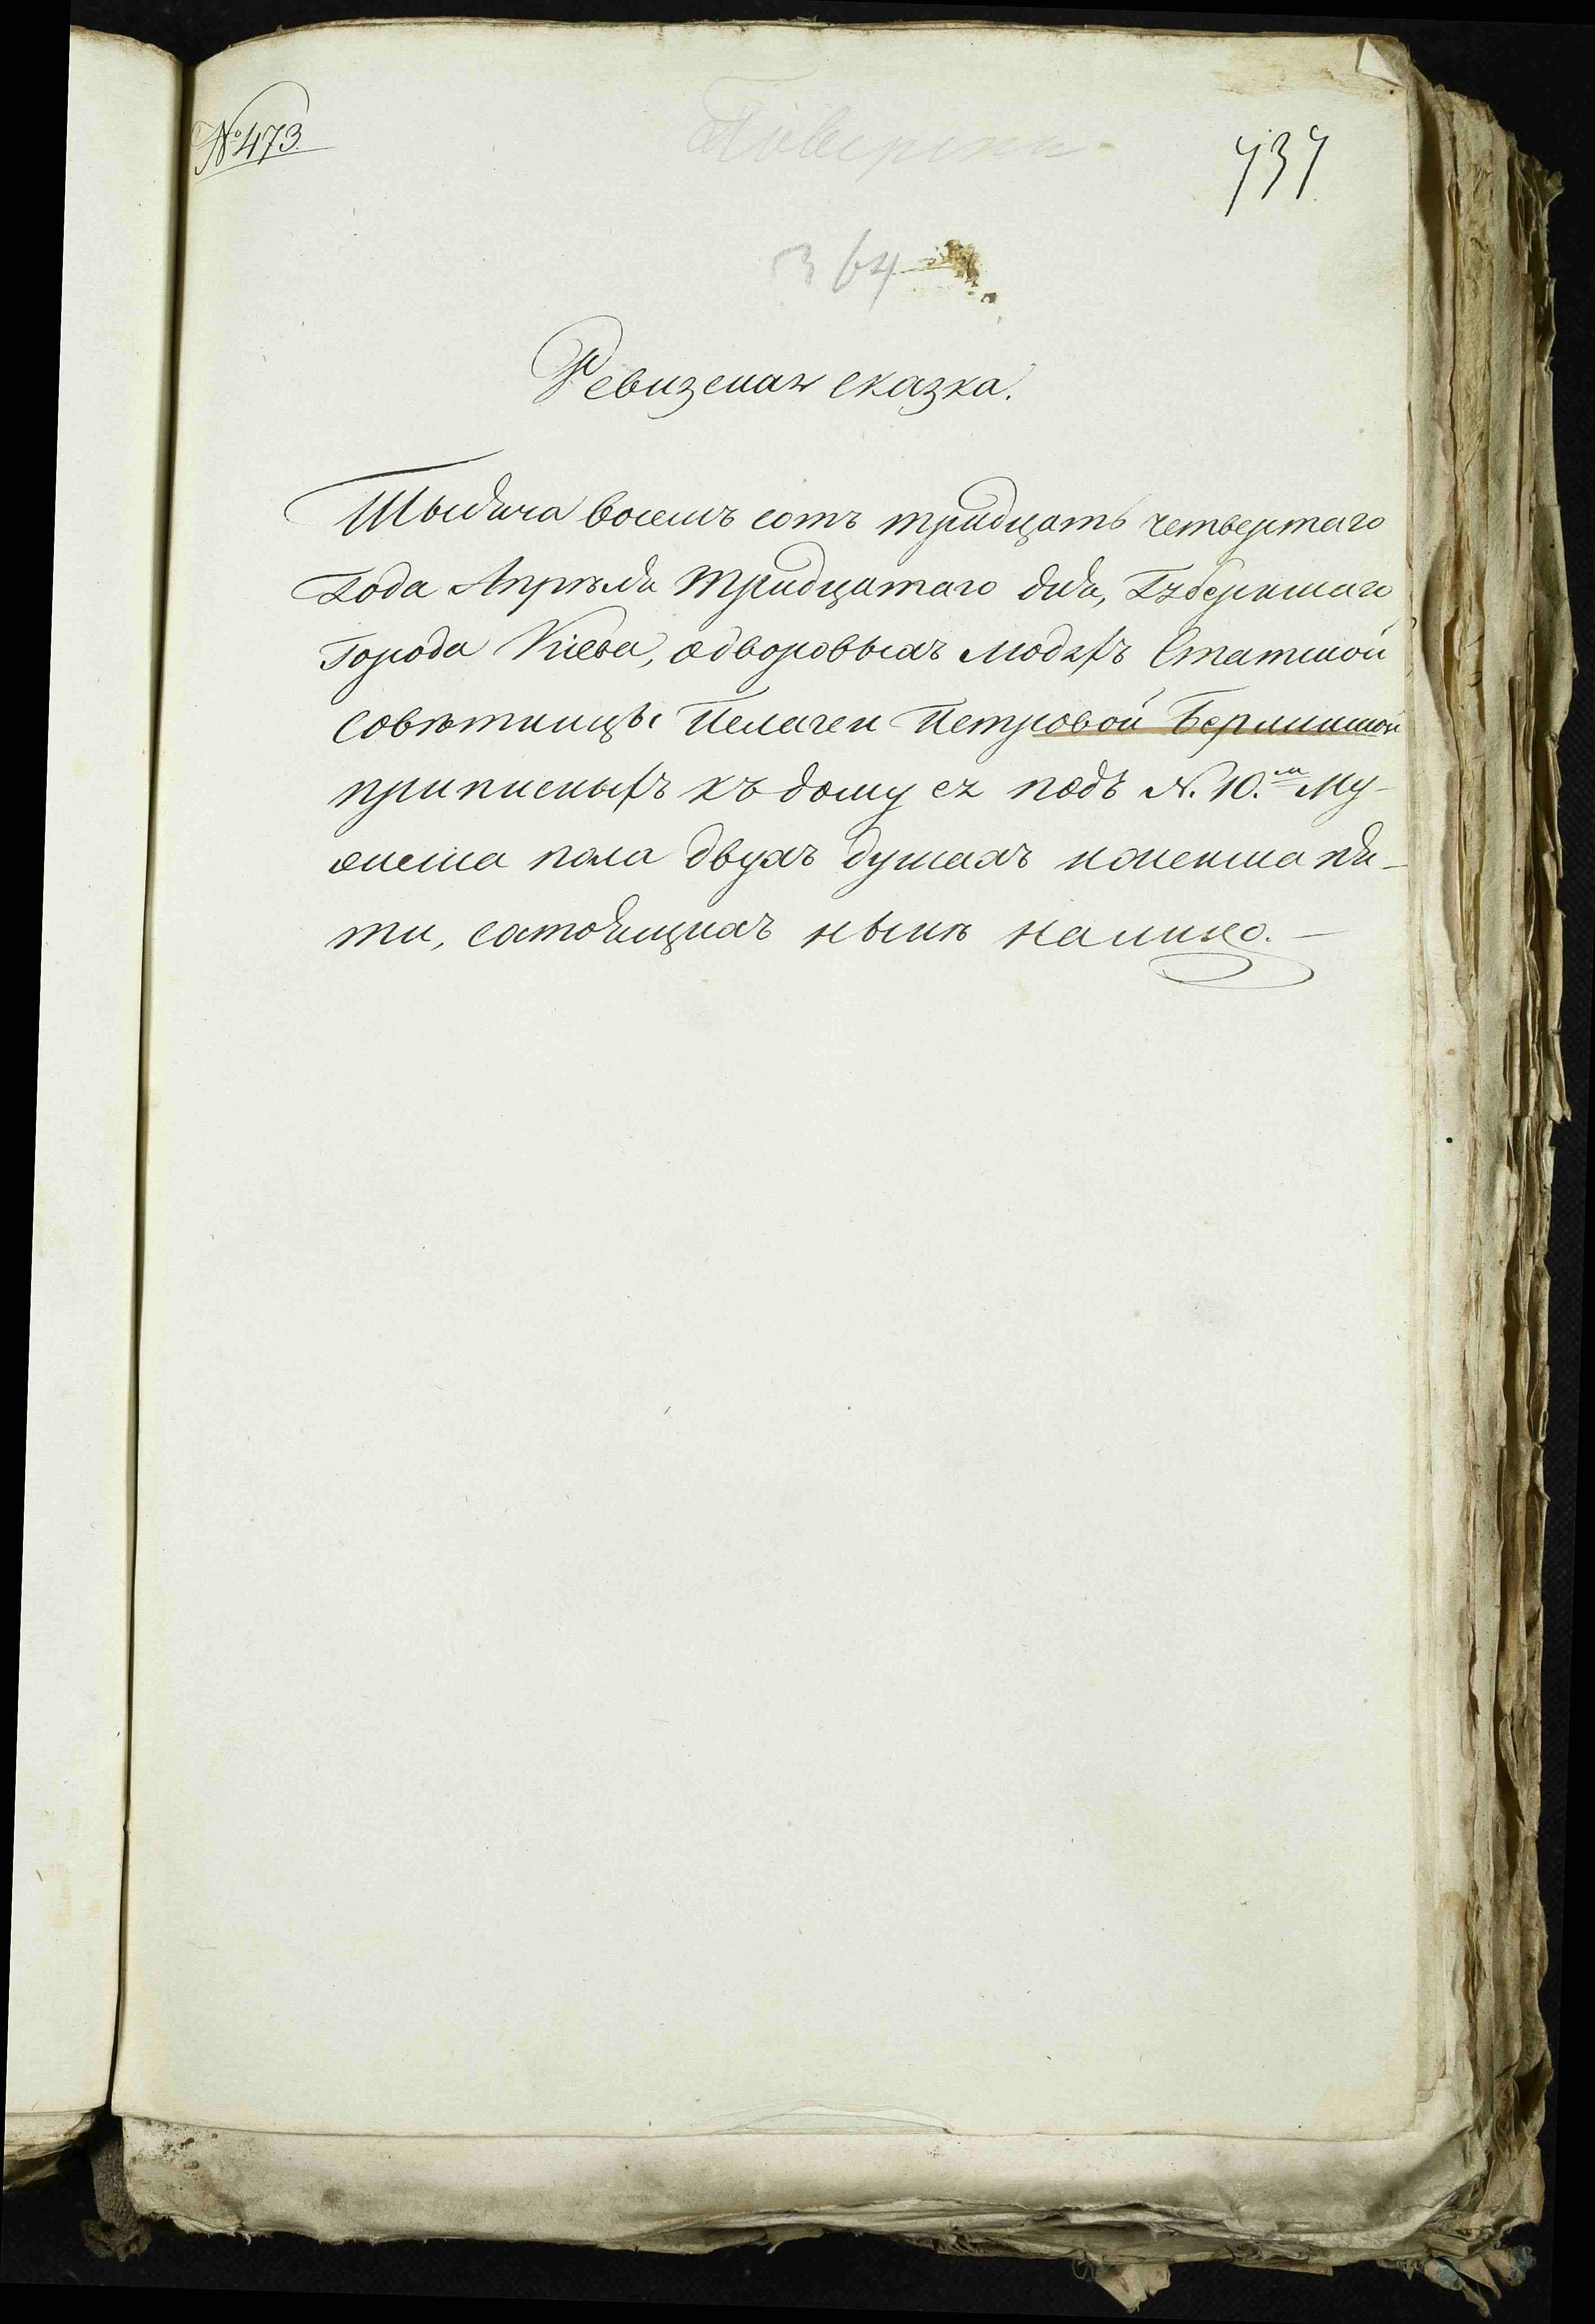 №473.
737
364
Ревизская сказка.
Тысяча восемъ сотъ тридцать четвертаго
Года Апрѣля Тридцатаго дня, Губернскаго
города Кіева, одворовыхъ людяхъ Статской
совѣтницы Пелагеи Петровой Берлинской
приписныхъ къ дому ея подъ N. 10.мъ Му-
жеска пола двухъ душахъ и женска пя-
ти, состоящихъ нынѣ на лицо.—